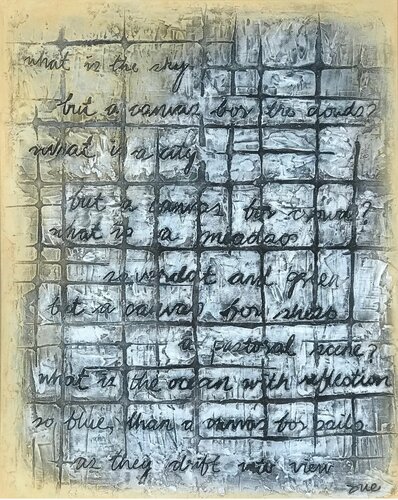 what is the sky
but a canvas for the clouds?
what is a city
but a canvas for crowds?
what is a meadow
so verdant and green
but a canvas for sheep
a pastoral scene?
what is the ocean with reflection
so blue, than a canvas for sails
as they drift into view
sue